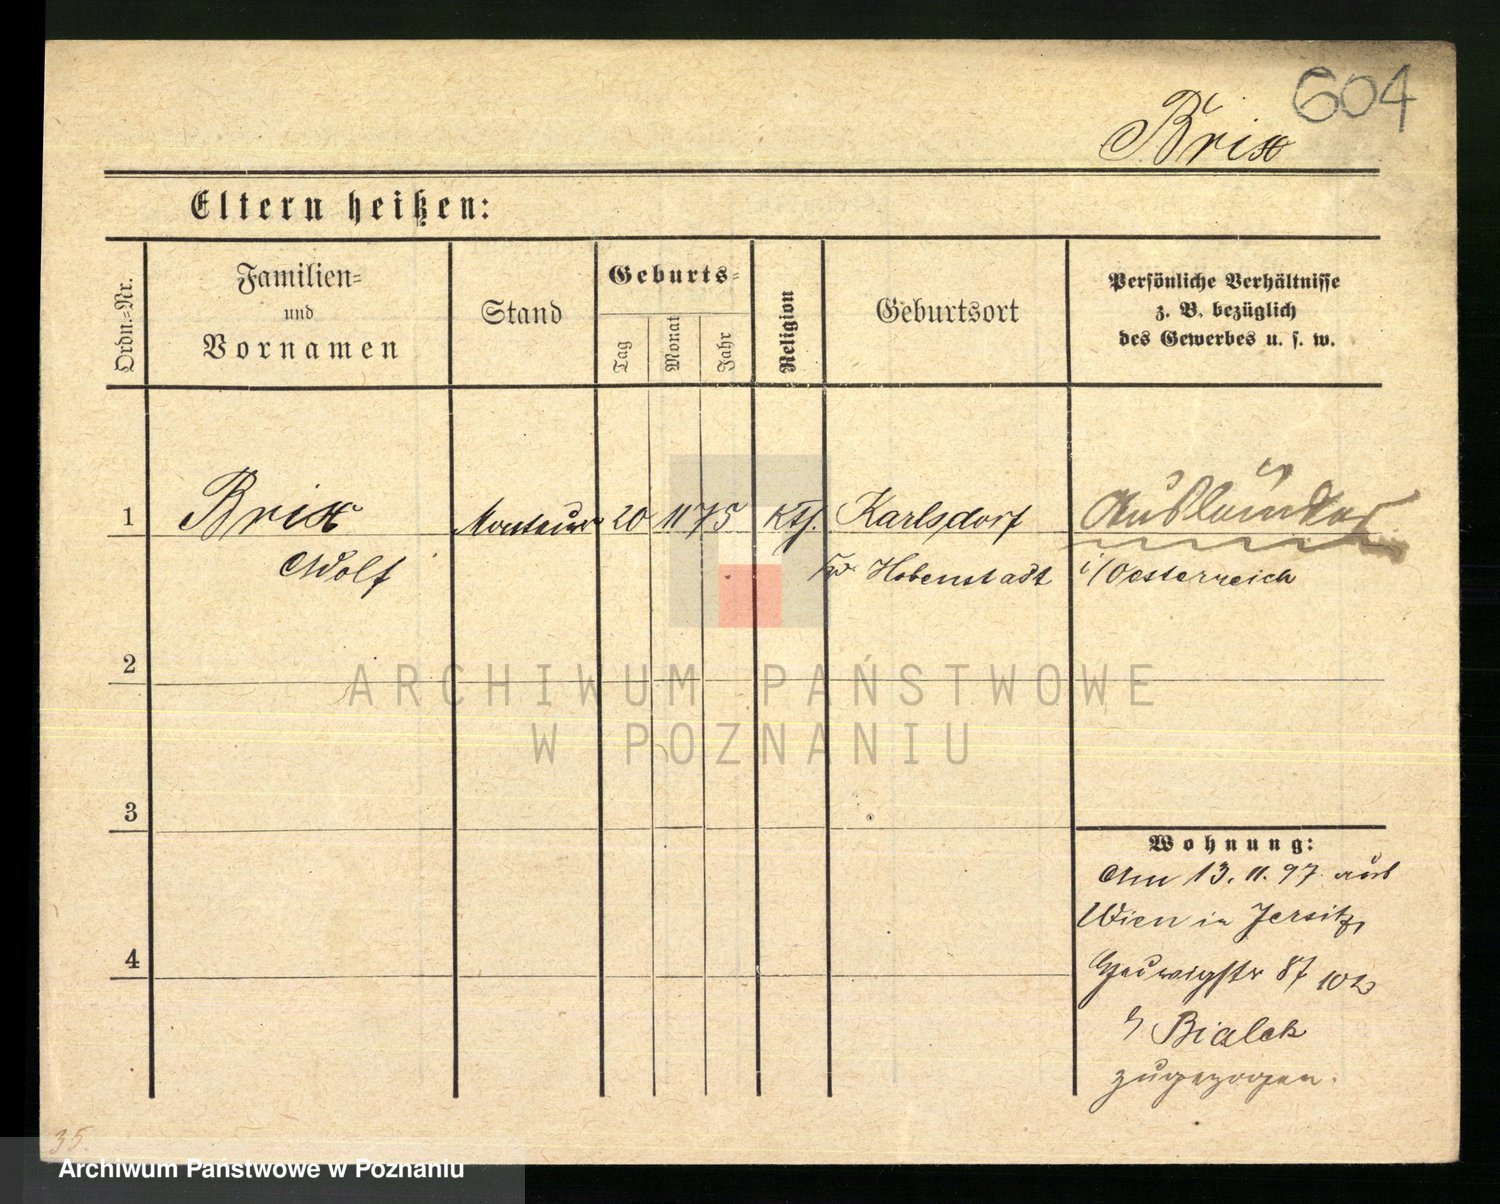 604
Brix
Eltern heißen:
Ordn.-Nr.
Familien-
und
Vornamen
Stand
Geburts-
Tag
Monat
Jahr
Religion
Geburtsort
Persönliche Verhältnisse
z. B. bezüglich
des Gewerbes u. s. w.
1 Brix Monteur 20 11 75 Kth. Karlsdorf Ausländer
Adolf Hohenstadt i/Oesterreich
2
3
4
Wohnung:
Am 13. 11. 97 aus
Wien in Jersitz,
87
b/ Bialek
zugezogen.
35.
ARCHIWUM PAŃSTWOWE
W POZNANIU
Archiwum Państwowe w Poznaniu